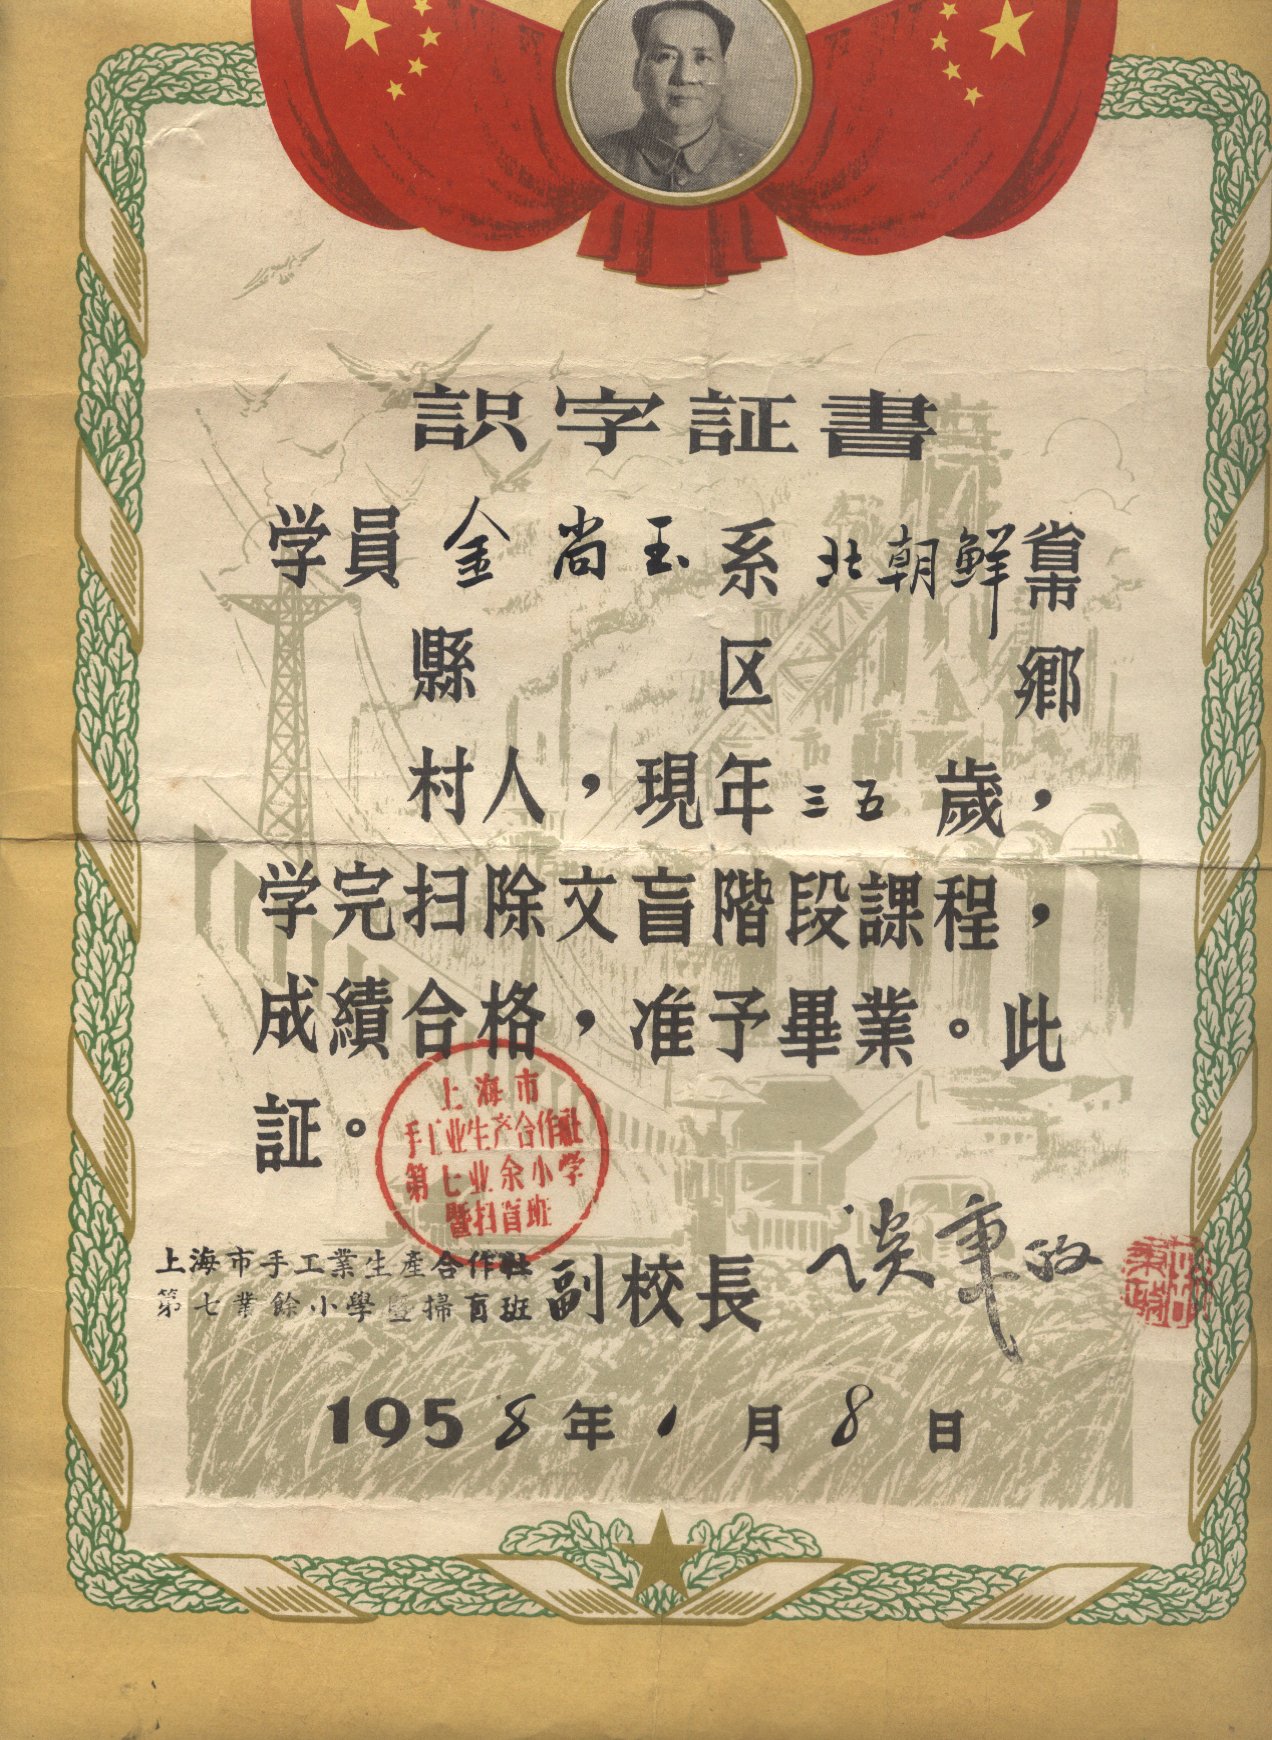 識字証書
学員 金尚玉 系 北朝鮮 省市
縣 区 鄉
村人，現年三五歲，
学完扫除文盲階段課程，
成績合格，准予畢業。此
証。
上海市
手工业生产合作社
第七业余小学
暨扫盲班
上海市手工業生產合作社
第七業餘小學暨掃盲班
副校長
1958年1月8日